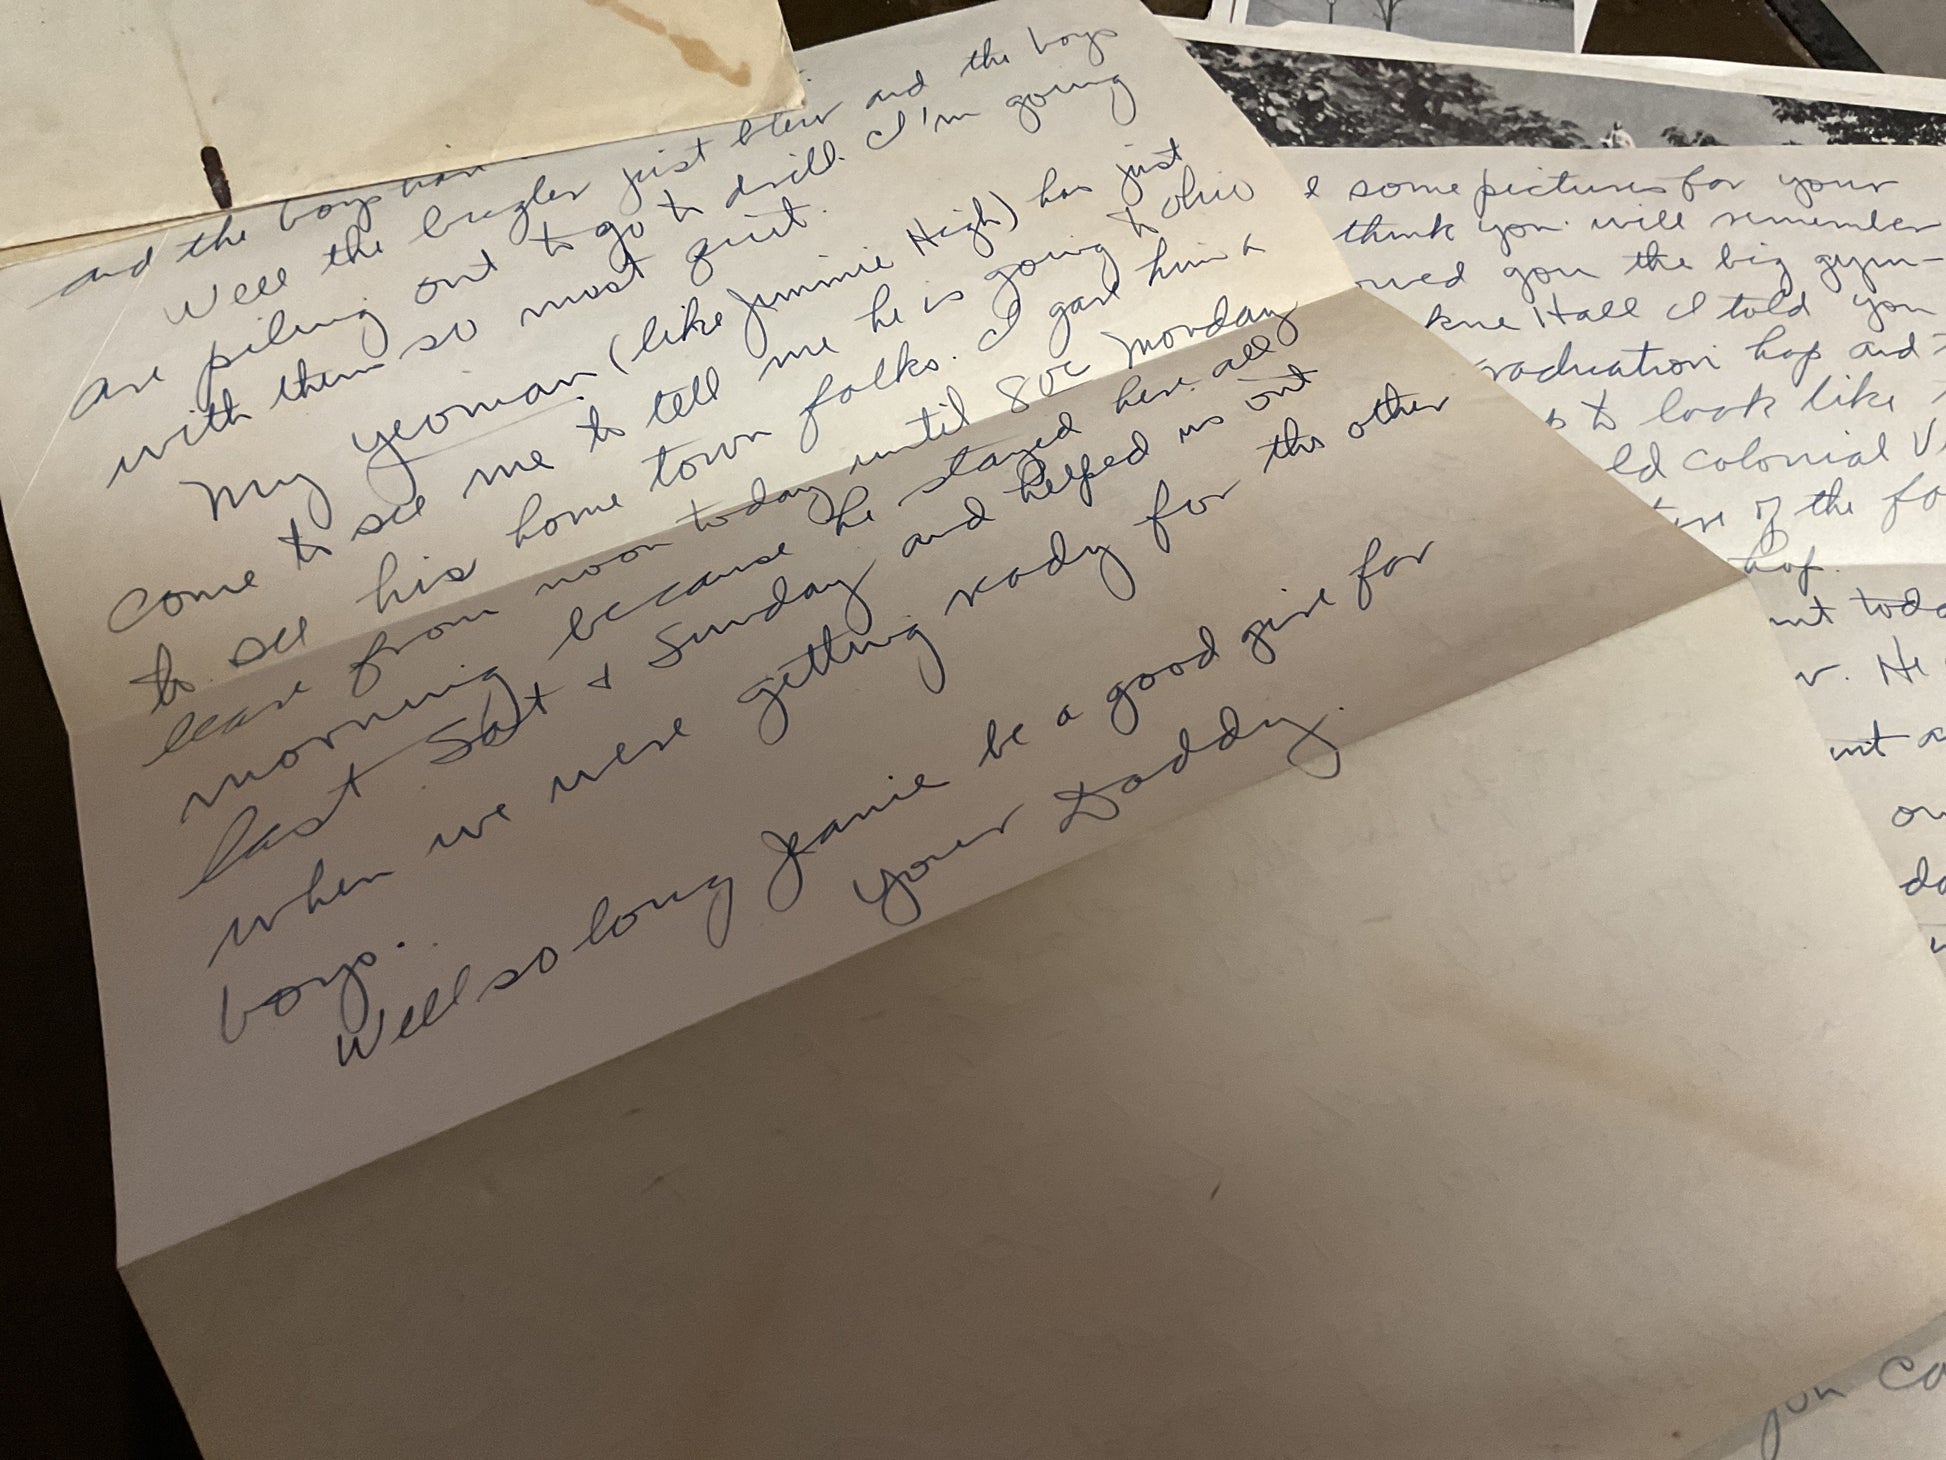 and the boys
Well the bugler just blew and the boys
are piling out to go to drill. I'm going
with them so must quit.
My yeoman (like Jimmie High) has just
come to see me to tell me he is going to Ohio
to see his home town folks. I gave him a
leave from noon today until 800 Monday
morning because he stayed here all
last Sat + Sunday and helped us out
when we were getting ready for the other
boys.
Well so long Jeanie be a good girl for
your Daddy.
some pictures for your
think you will remember
you the big gym-
Hall I told you
hop and
to look like
ld colonial
of the
hop.
He